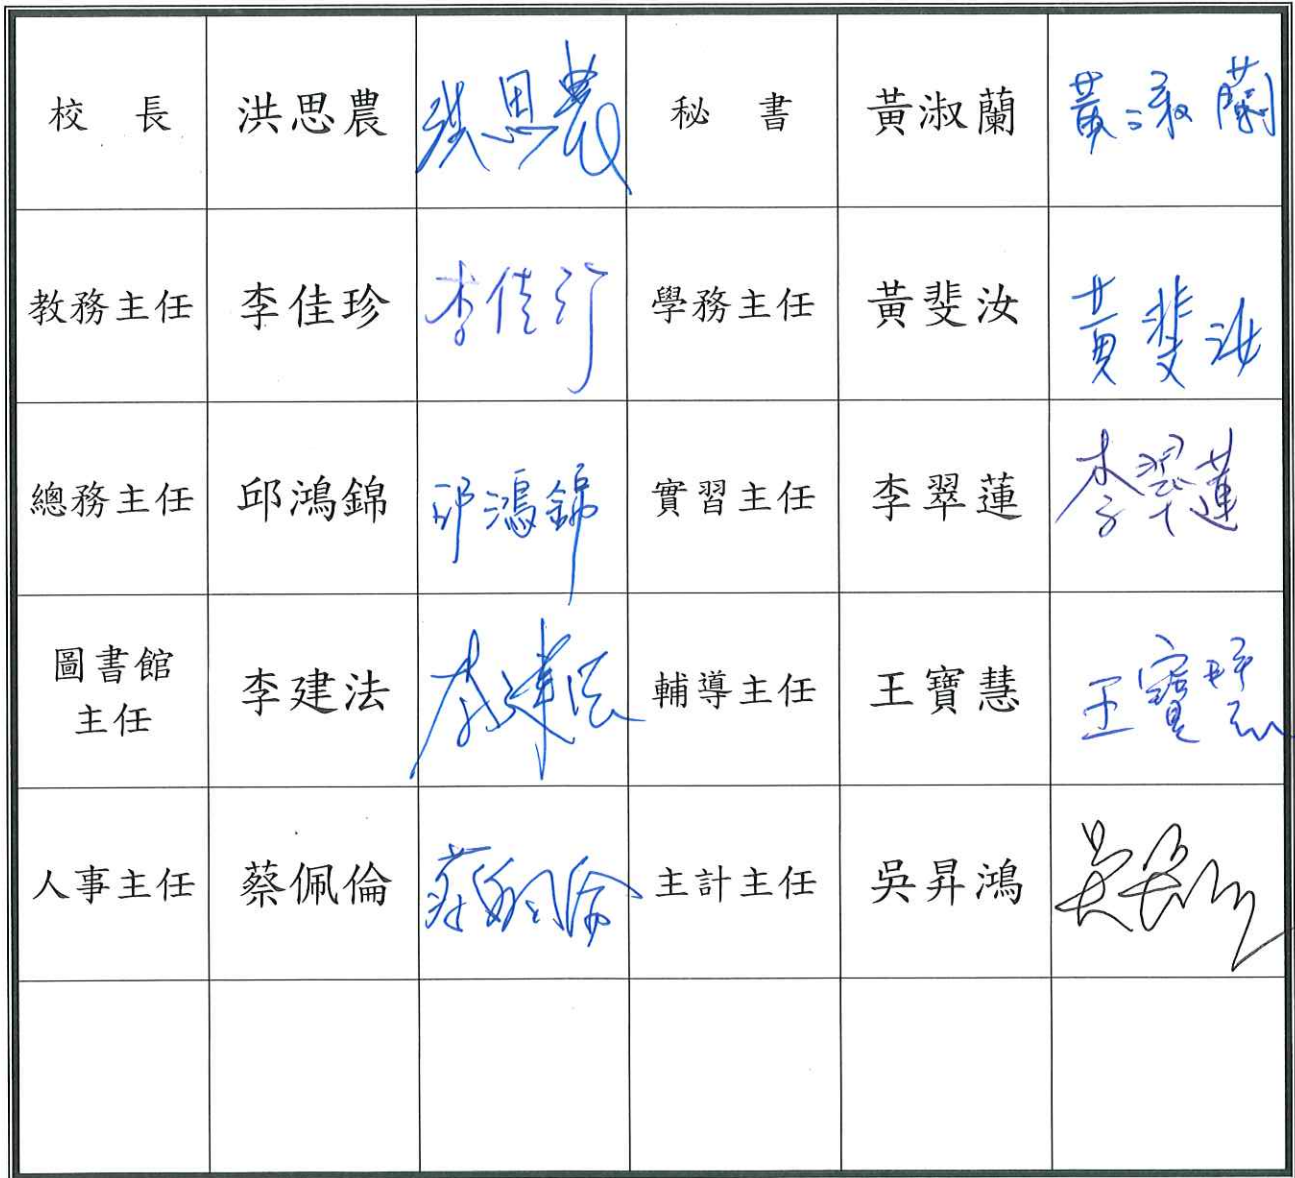 校 長 洪思農 洪思農 秘 書 黃淑蘭 黃淑蘭
教務主任 李佳珍 李佳珍 學務主任 黃斐汝 黃斐汝
總務主任 邱鴻錦 邱鴻錦 實習主任 李翠蓮 李翠蓮
圖書館
主任 李建法 李建法 輔導主任 王寶慧 王寶慧
人事主任 蔡佩倫 蔡佩倫 主計主任 吳昇鴻 吳昇鴻